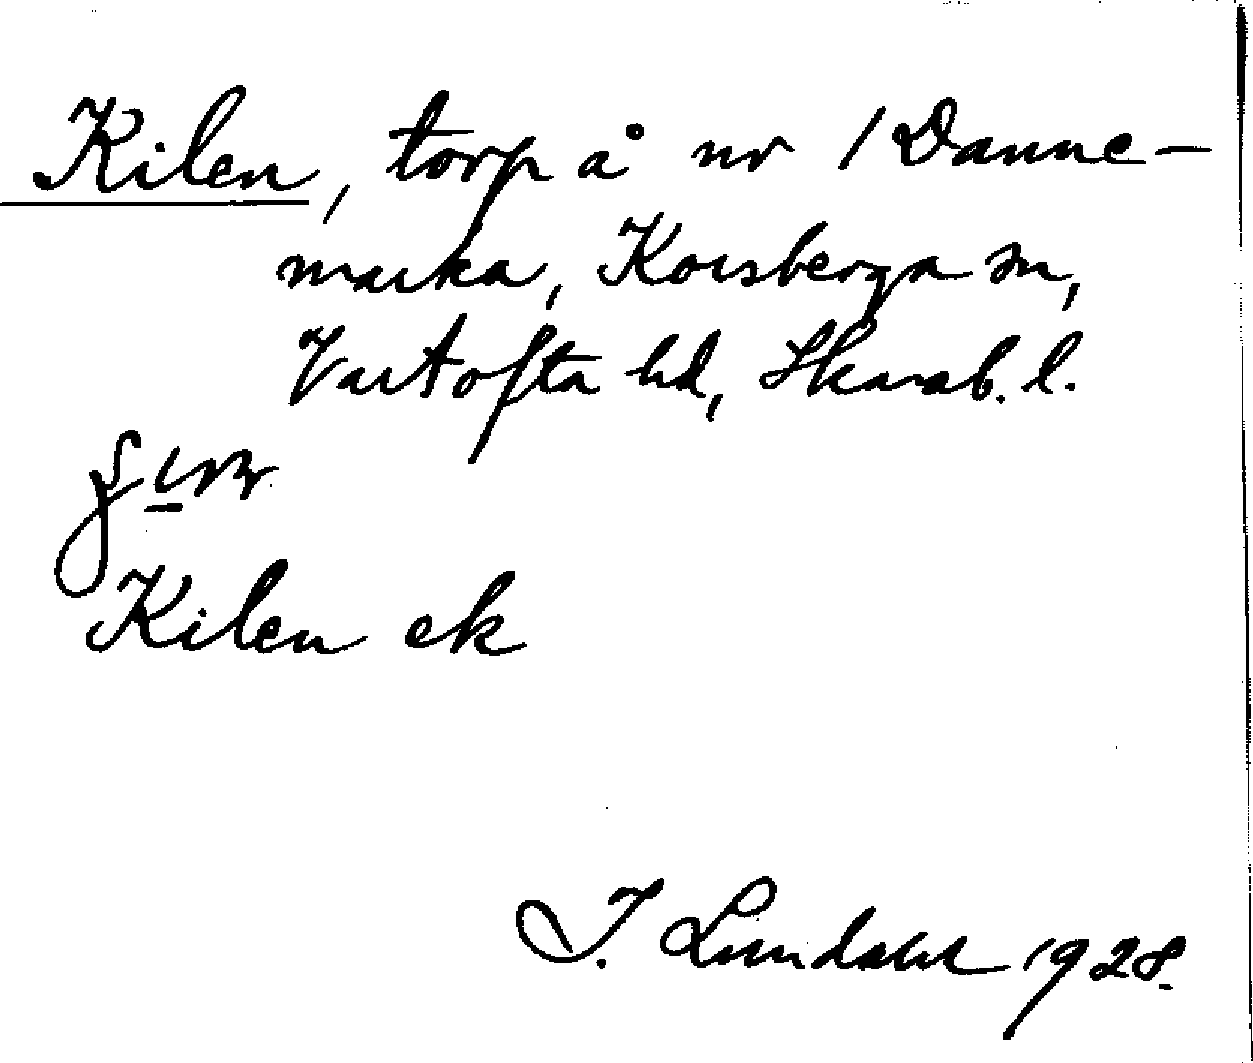 Kilen, torp å nr 1 Danne-
marka, Korsberga sn,
Vartofta hd, Skarab. l.
Kilen ek
I. Lundahl 1928.